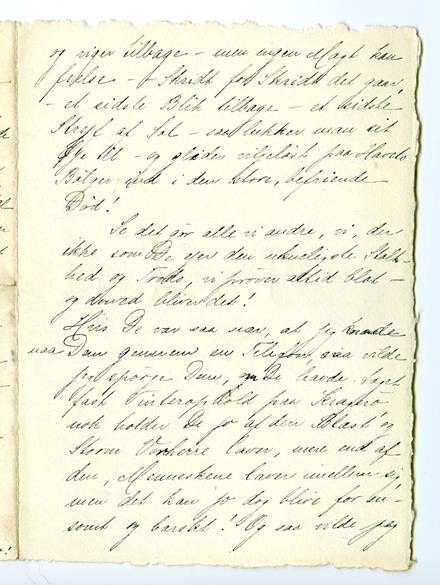 og viger tilbage – men ingen Magt kan
frelse – Skridt for Skridt det gaar,
– et sidste Blik tilbage – et sidste
Strejf af Sol – saa lukker man sit
Øje til – og glider viljeløst paa Havets
Bølger ind i den store, befriende
Død!
Se det gør alle vi andre, vi, der
ikke som De ejer den Stolt-
hed og Trods, vi prøver altid blot –
og derved bliver det!
Hvis De var saa nær, at jeg kunde
naa Dem gennem en Telefon, saa vilde
jeg spørge Dem, om De havde taget
fast Vinterophold paa Kragerø
nok holder De jo af den Blæst og
Storm Vorherre laver, mere end af
den, Menneskene laver imellem sig,
men det kan jo dog blive for en-
somt og barskt! Og saa vilde jeg